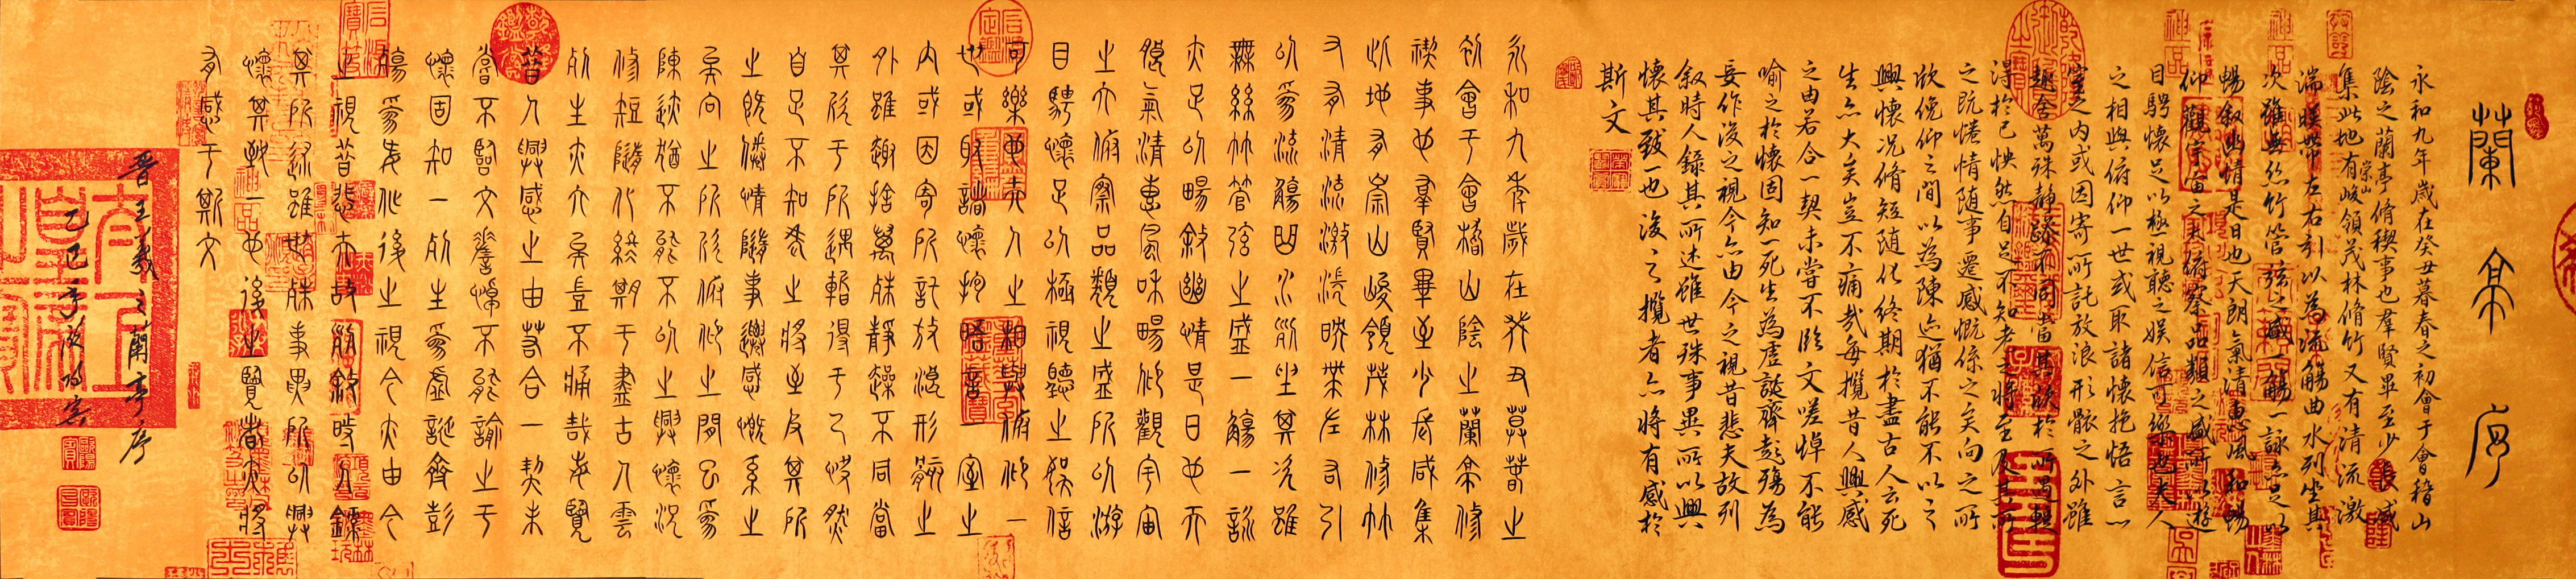 蘭亭序
永和九年歲在癸丑暮春之初會于會稽山
陰之蘭亭脩稧事也羣賢畢至少長咸
集此地有崇山峻領茂林脩竹又有清流激
湍暎帶左右引以為流觴曲水列坐其
次雖無絲竹管弦之盛一觴一詠亦足以
暢叙幽情是日也天朗氣清惠風和暢
仰觀宇宙之大俯察品類之盛所以遊
目騁懷足以極視聽之娛信可樂也夫人
之相與俯仰一世或取諸懷抱悟言一
室之內或因寄所託放浪形骸之外雖
趣舍萬殊靜躁不同當其欣於所遇蹔
得於己怏然自足不知老之將至及其所
之既惓情隨事遷感慨係之矣向之所
欣俛仰之間以為陳迹猶不能不以之
興懷況脩短隨化終期於盡古人云死
生亦大矣豈不痛哉每攬昔人興感
之由若合一契未嘗不臨文嗟悼不能
喻之於懷固知一死生為虛誕齊彭殤為
妄作後之視今亦由今之視昔悲夫故列
叙時人錄其所述雖世殊事異所以興
懷其致一也後之攬者亦將有感於
斯文
永和九年歲在癸丑莫春之
初會于會稽山陰之蘭亭修
禊事也羣賢畢至少長咸集
此地有崇山峻領茂林修竹
又有清流激湍映帶左右引
以為流觴曲水列坐其次雖
無絲竹管弦之盛一觴一詠
亦足以暢敘幽情是日也天
朗氣清惠風和暢仰觀宇宙
之大俯察品類之盛所以游
目騁懷足以極視聽之娛信
可樂也夫人之相與俯仰一
世或取諸懷抱晤言一室之
內或因寄所託放浪形骸之
外雖趣捨萬殊靜躁不同當
其欣于所遇暫得于己快然
自足不知老之將至及其所
之既倦情隨事遷感慨系之
矣向之所欣俯仰之間已為
陳跡猶不能不以之興懷況
修短隨化終期于盡古人雲
死生亦大矣豈不痛哉每覽
昔人興感之由若合一契未
嘗不臨文嗟悼不能諭之于
懷固知一死生為虛誕齊彭
殤為妄作後之視今亦由今
之視昔悲夫故列敘時人錄
其所述雖世殊事異所以興
懷其致一也後之覽者亦將
有感于斯文
晉王羲之蘭亭序
乙巳年